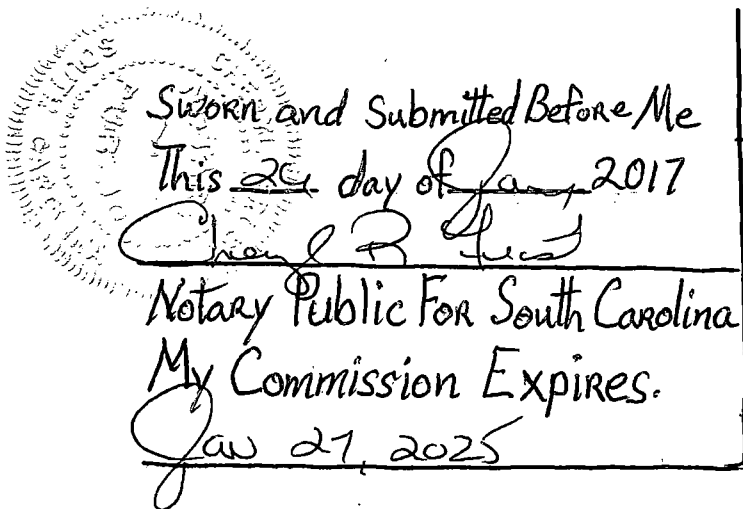 Sworn and Submitted Before Me
This 24 day of Jan, 2017
Cheryl R
Notary Public For South Carolina
My Commission Expires.
Jan 27, 2025